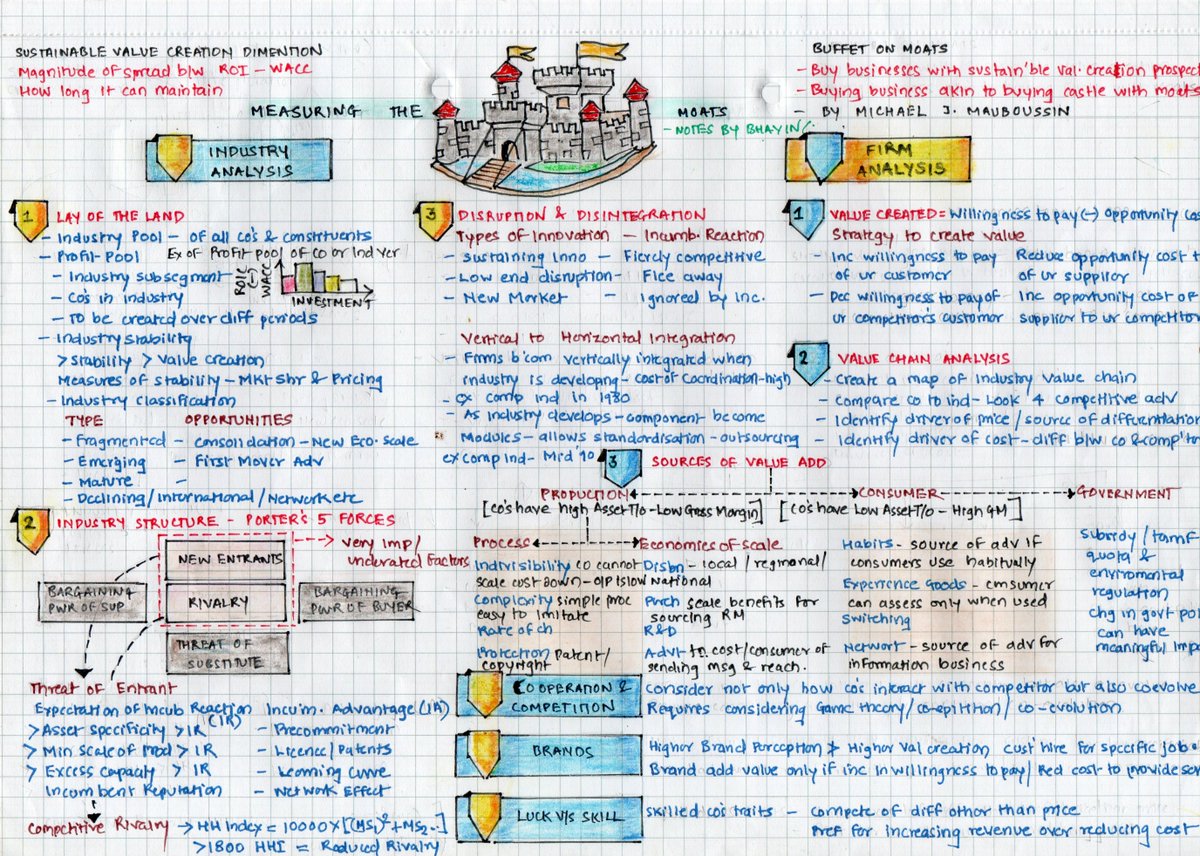 SUSTAINABLE VALUE CREATION DIMENTION
Magnitude of spread b/w ROI - WACC
How long it can maintain
BUFFET ON MOATS
- Buy businesses with sustain'ble val. creation prospect
- Buying business akin to buying castle with moats
- BY MICHAEL J. MAUBOUSSIN
MEASURING THE MOATS
- NOTES BY BHAVIN
INDUSTRY ANALYSIS
1 LAY OF THE LAND
- Industry Pool - of all co's & constituents
- Profit Pool
Ex of Profit pool of co or Ind
- Industry subsegment
- Co's in industry
- To be created over diff periods
ROIC (-) WACC
INVESTMENT
- Industry stability
> Stability > Value creation
Measures of stability - Mkt Shr & Pricing
- Industry classification
TYPE OPPORTUNITIES
- Fragmented - consolidation - New Eco. scale
- Emerging - First Mover Adv
- Mature -
- Declining / International / Network etc
2 INDUSTRY STRUCTURE - PORTER'S 5 FORCES
NEW ENTRANTS
very imp/
underated Factors
BARGAINING PWR OF SUP
RIVALRY
BARGAINING PWR OF BUYER
THREAT OF SUBSTITUTE
Threat of Entrant
Expectation of Incub Reaction (IR) Incum. Advantage (IA)
> Asset specificity > IR - Precommitment
> Min Scale of Prod > IR - Licence / Patents
> Excess capacity > IR - Learning curve
Incumbent Reputation - Network Effect
Competitive Rivalry → HH Index = 10000 X [(MS1)² + MS2..]
> 1800 HHI = Reduced Rivalry
3 DISRUPTION & DISINTEGRATION
Types of Innovation - Incumb. Reaction
- sustaining Inno - Fiercly competitive
- Low end disruption - Flee away
- New Market - Ignored by Inc.
Vertical to Horizontal Integration
- Firms b'com vertically integrated when
industry is developng - cost of coordination - high
- ex comp ind in 1980
- As industry develops - component become
Modules - allows standardisation - outsourcing
ex comp ind - Mid '90
FIRM ANALYSIS
1 VALUE CREATED = Willingness to pay (-) opportunity cos
Strategy to create value
- Inc willingness to pay of ur customer
Reduce opportunity cost t of ur supplier
- Dec willingness to pay of ur competitor's customer
Inc opportunity cost of supplier to ur competitor
2 VALUE CHAIN ANALYSIS
- Create a map of industry value chain
- Compare co to ind - Look 4 competitive adv
- Identify driver of price / source of differentiation
- Identify driver of cost - diff b/w co & comp'to
3 SOURCES OF VALUE ADD
PRODUCTION CONSUMER GOVERNMENT
[co's have high Asset T/O - Low Gross Margin]
[co's have Low Asset T/O - High GM]
Process
Indivisibility co cannot
scale cost down - O/P is low
Complexity simple proc
easy to imitate
Rate of ch
Protection Patent/
copyright
Economies of scale
Distbn - local / regional/
National
Purch scale benefits for
sourcing RM
R&D
Advt to cost/consumer of
sending msg & reach.
Habits - source of adv if
consumers use habitually
Experience Goods - consumer
can assess only when used
Switching
Network - source of adv for
information business
Subsidy / tarrif
quota &
enviromental
regulation
chg in govt pol
can have
meaningful impa
CO OPERATION & COMPETITION
Consider not only how co's interact with competitor but also coevolve
Requires considering Game theory / co-opitition / co-evolution
BRANDS
Higher Brand Perception ≯ Higher Val creation cust hire for specific job
Brand add value only if inc in willingness to pay / Red cost to provide ser
LUCK V/S SKILL
Skilled co's traits - compete of diff other than price
Pref for increasing revenue over reducing cost